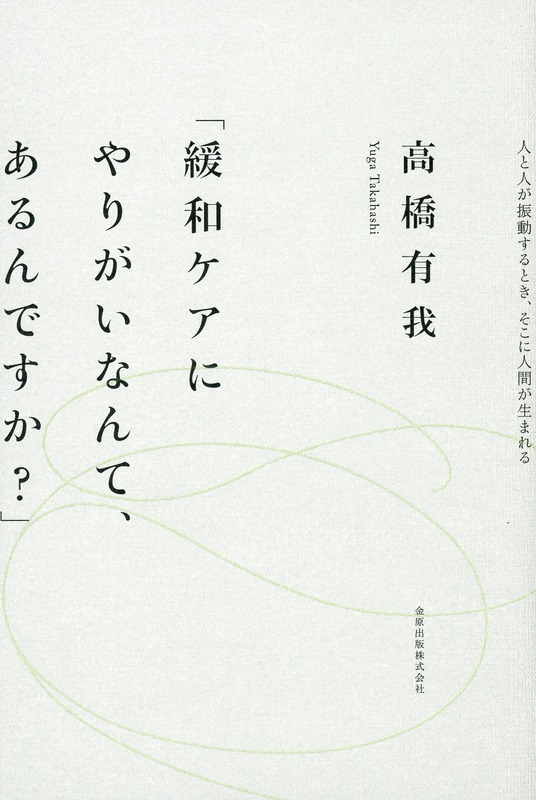 人と人が振動するとき、そこに人間が生まれる
高橋有我
Yuga Takahashi
「緩和ケアに
やりがいなんて、
あるんですか?」
金原出版株式会社